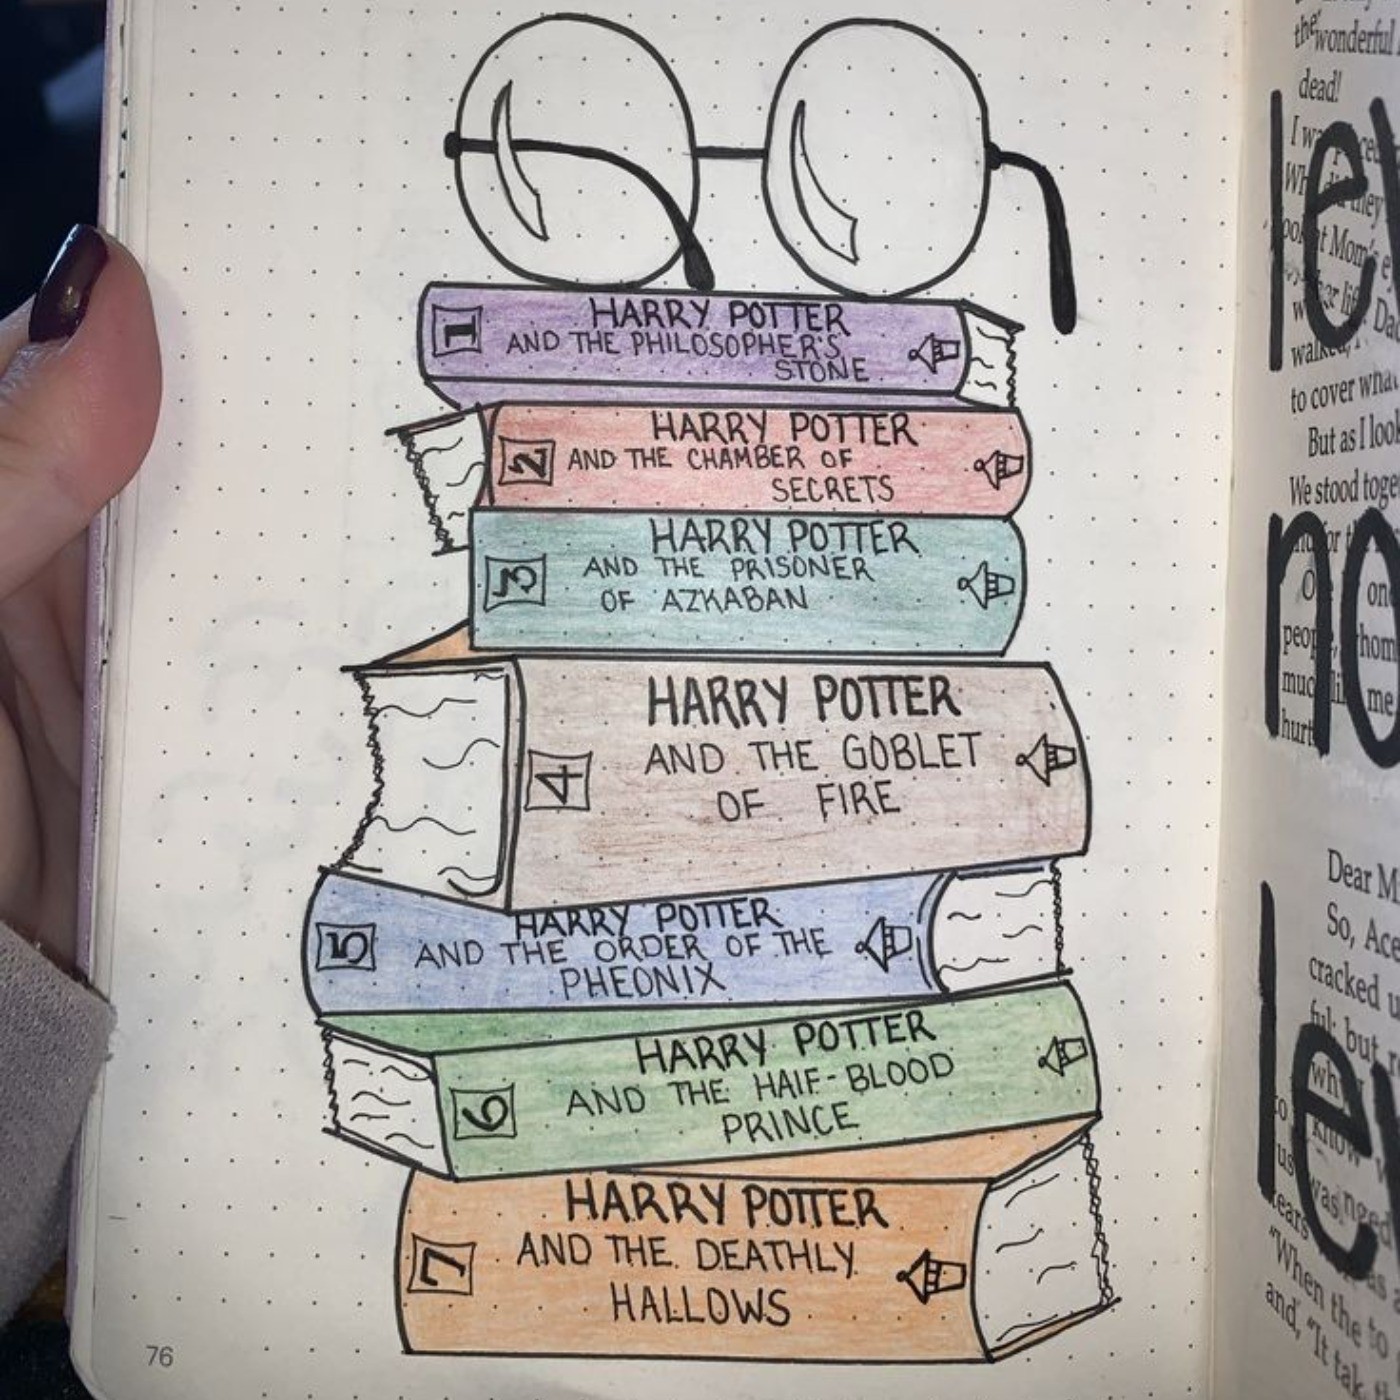 1
HARRY POTTER
AND THE PHILOSOPHER'S
STONE
2
HARRY POTTER
AND THE CHAMBER OF
SECRETS
3
HARRY POTTER
AND THE PRISONER
OF AZKABAN
4
HARRY POTTER
AND THE GOBLET
OF FIRE
5
HARRY POTTER
AND THE ORDER OF THE
PHEONIX
6
HARRY POTTER
AND THE HALF-BLOOD
PRINCE
7
HARRY POTTER
AND THE DEATHLY
HALLOWS
76
wonderful
dead!
to cover what
But as I look
We stood toge
hurt
Dear M
So, Ace
cracked
but
"When the
and, "It tak